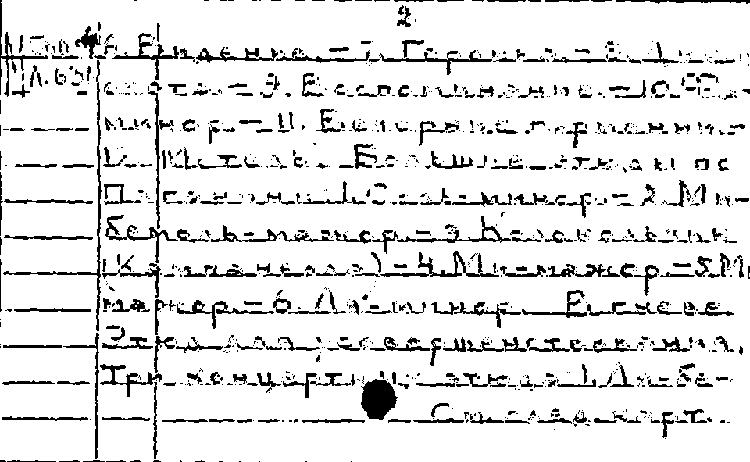 2
6. Видение. - 7. Героика. - 8. Дикая
охота. - 9. Воспоминание. - 10. Фа-
минор. - 11. Вечерние гармонии. -
12. Метель. Большие этюды по
Паганини. 1. Соль-минор. - 2. Ми-
бемоль-мажор. - 3. Колокольчик
(Кампанелла) - 4. Ми-мажор. - 5. Ми
мажор. - 6. Ля-минор. В гневе.
Этюд для усовершенствования.
Три концертных этюда 1. Ля-бе-
См. след. карт.